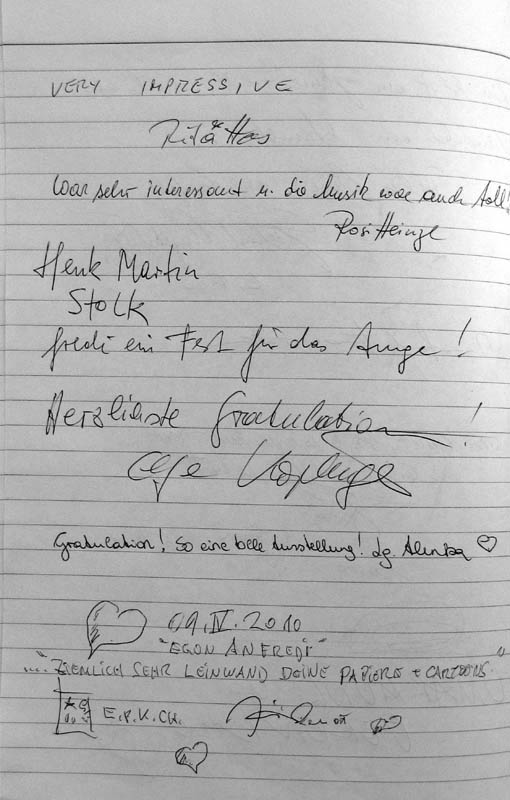 VERY IMPRESSIVE
Rita Has
War sehr interessant u. die Musik war auch toll!
Rosi Heinze
Henk Martin
Stolk
fredi ein Fest für das Auge!
Herzlichste Gratulation!
Gratulation! So eine tolle Ausstellung! lg. Alenka
09.IV.2010
"EGON AN FREDI"
...."ZIEMLICH SEHR LEINWAND DEINE PAPIERE + CARTOONS."
E.P.K.CH.